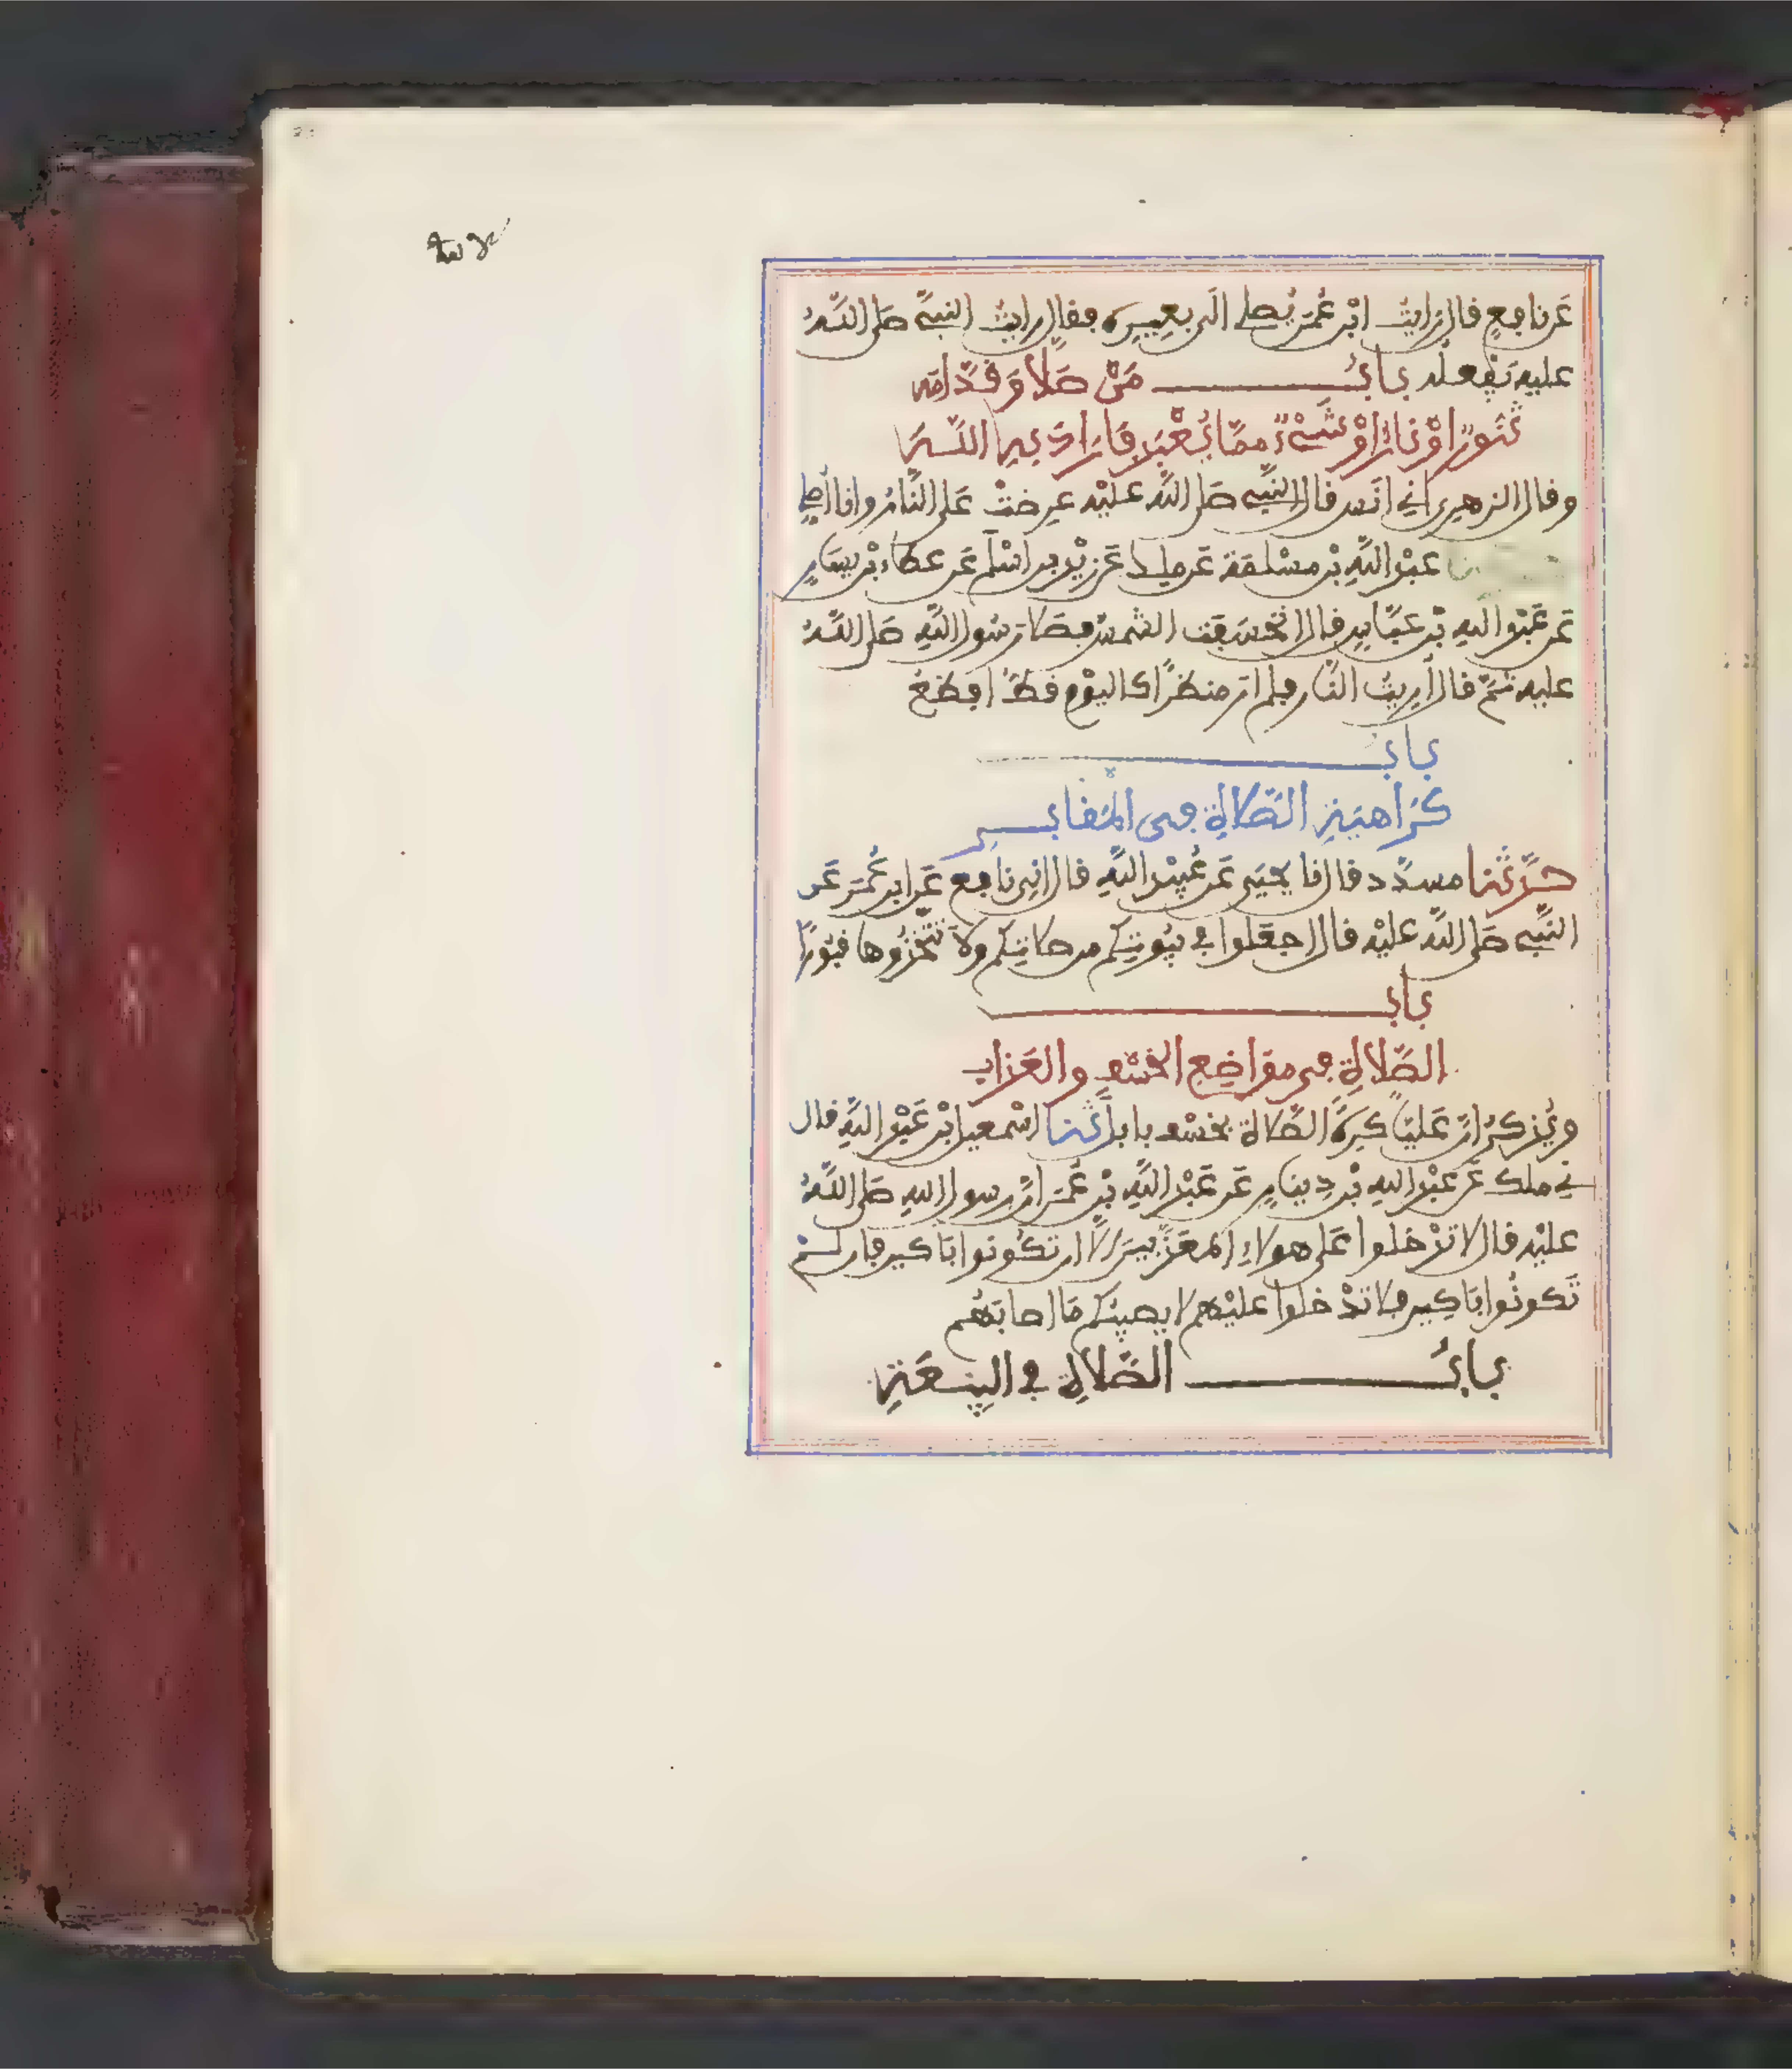 عَن نافِعٍ قال رَايتُ ابْن عُمَرَ يُصلي الَى بعِيرِه فقال رايتُ النبيَّ صَلى اللَّهُ
عليه يَفْعلُه بابُ مَنْ صَلَّا وَقُدَّامَه
تَنُّورٌ اوْ نارٌ اوْ شَيْءٌ ممَّا يُعْبَدُ فَارَادَ بِهِ اللَّـهَ
وقال الزهري اني انَس قال النَّبي صَلى اللَّه عليْه عرِضَتْ عَلى النَّارُ وانا أُصلي
نا عبْد اللَّهِ بْن مسْلَمَة عَن ملك عَن زيْد بن اسْلَم عَن عطاء بْن يسَارٍ
عَن عَبْد اللهِ بْن عَبَّاسٍ قال انْخسَفَت الشمسُ فصَلا رسُول اللَّه صَلى اللَّـهُ
عليه ثُمَّ قال أُرِيتُ النَّار فلم ار منظرًا كاليوْم قطّ افظعَ
بابُ
كَرَاهيَةِ الصَّلاةِ فى المَقابـــرِ
حدَّثنا مسدَّد قال نا يحيَى عَن عُبيْد اللَّهِ قال اني نافع عَن ابن عُمَرَ عَن
النَّبي صَلى اللَّه عليْه قال اجعَلوا في بيُوتِكم من صلاتِكم ولا تَتَّخذُوها قبُورًا
بابُ
الصَّلاةِ فى موَاضِعِ الخسْفِ والعَذابِ
ويُذكرُ انَّ عَليّا كرِهَ الصَّلاة بخسْف بابل ثَنا اسْمعيل ابْن عَبْد اللَّهِ قال
ني ملك عَن عبْد اللهِ بْن دِينارٍ عَن عَبْد اللَّهِ بْن عُمَرَ انَّ رسول اللهِ صَلى اللَّهُ
عليْه قال لا تدْخلوا عَلى هولاءِ المعَذَّبينَ الَّا ان تكُونوا بَاكين فان لـمْ
تَكونُوا بَاكِين فلا تدْخلوا عليْهم لا يصيبُكم مَا اصابَهُم
بابُ الصَّلاةِ في البِيعَةِ